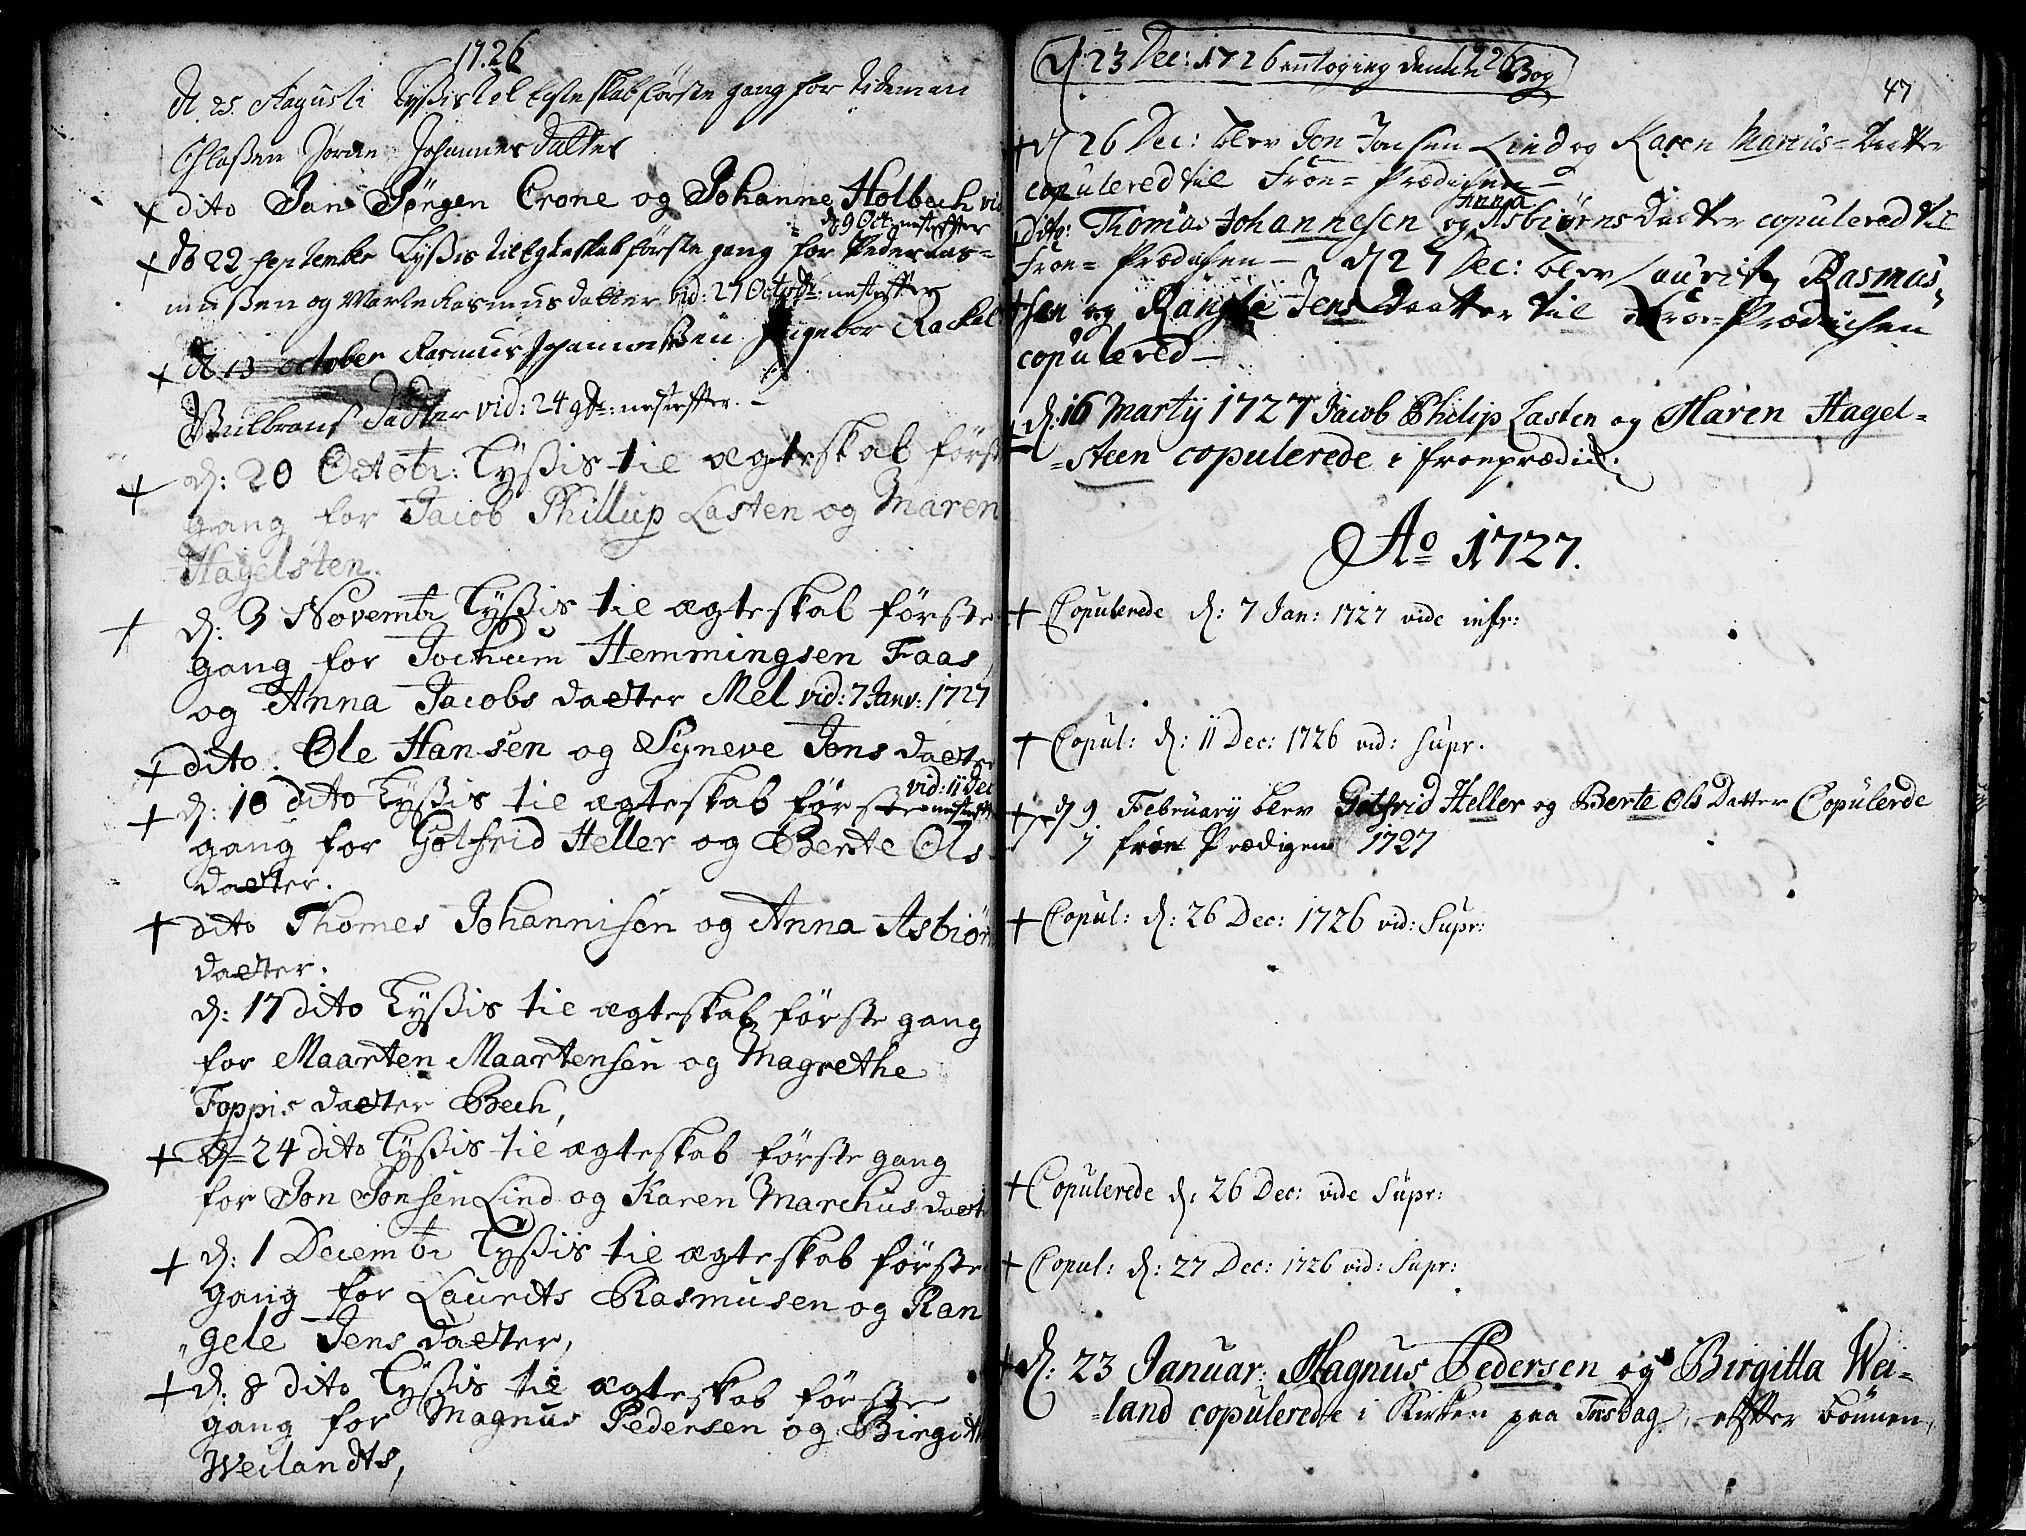 1726
d. 25. Augusti Lyßis til Egteskab første gang for Tideman
Claßen Jøran Johannes Datter
+ dito Jan Jørgen Crone og Johanne Holbech vid
d 9 Oct: nestefter
+ d 22 September Lyßis til Egteskab første gang for Peder Ras=
mußen og Marte Rasmusdatter vid: 27 Octobr: nestefter
+ d 13 october Rasmus Johannesßen Ingebor Rackel
Gulbrans Datter vid: 24 9br: nestefter. –
+ d: 20 Octobr: Lyßis til ægteskab først
gang for Jacob Phillup Lasten og Maren
Hagelsten.
+ d: 3 Novembr Lyßis til ægteskab første
gang for Jochum Hemmingsen Faas
og Anna Jacobs daetter Mel vid: 7 Janv: 1727
+ dito. Ole Hansen og Syneve Jons daetter
vid: 11 Dec
nestefter
+ d: 10 dito Lyßis til ægteskab første
gang for Gotfrid Heller og Berte Ols
daetter.
+ dito Thomes Johannisen og Anna Asbiørn
daetter.
d: 17 dito Lyßis til ægteskab første gang
for Maarten Maartensen og Magrethe
Foppis daetter Bech,
+ d= 24 dito Lyßis til ægteskab første gang
for Jon Jonsen Lind og Karen Marchus daet
+ d: 1 Decembr Lyßis til ægteskab første
gang for Laurits Rasmusen og Ran
„gele Jens daetter,
+ d: 8 dito Lyßis til ægteskab første
gang for Magnus Pedersen og Birgitta
Weilandts,
d. 23 Dec: 1726 Bog
47
+ d 26 Dec: blev Jon Jonsen Lind og Karen Marcus= Datter
copulered til Froe= Prædichen –
Anna
+ dito: Thomas Johannesen og Asbiørns Datter copulered til
Froe= Prædichen – d 27 Dec: blev Laurits Rasmus
+ sen og Rangele Jens Daatter til Froe=Prædichen
copulered –
+ d: 16 Martij 1727 Jacob Philip Lasten og Maren Hagel=
=steen copulerede i froeprædich:
Ao 1727.
+ Copulerede d: 7 Jan: 1727 vide infr:
+ Copul: d: 11 Dec: 1726 vid: supr.
+ d 9. Februarij blev Gotfrid Heller og Berte Ols Datter Copulerde
i froe Prædigen 1727
+ Copul: d: 26 Dec: 1726 vid: Supr:
+ Copulerede d: 26 Dec: vide Supr:
+ Copul: d: 27 Dec: 1726 vid: Supr:
+ d: 23 Januar: Magnus Pedersen og Birgitta Wei=
=land copulerede i Kirken paa Tirsdag, effter bønnen,